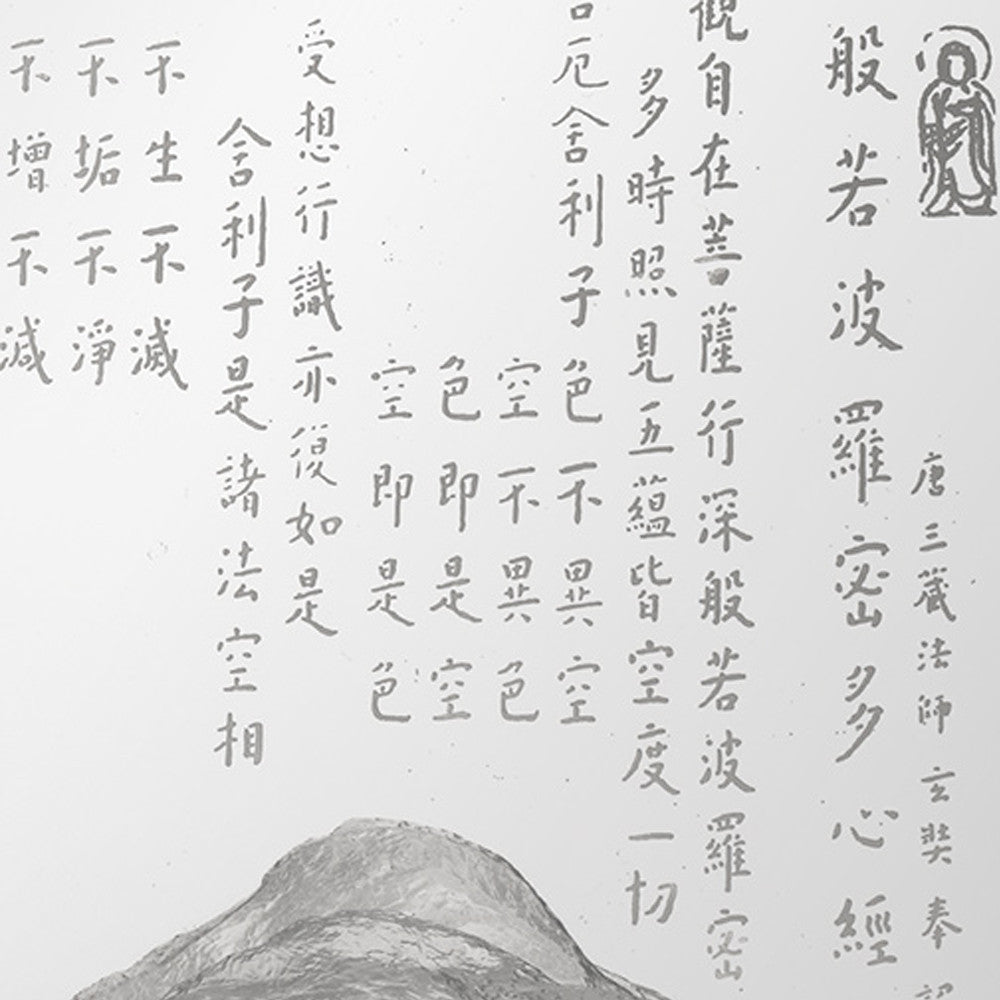 唐三藏法師玄奘奉
般若波羅密多心經
觀自在菩薩行深般若波羅密
多時照見五蘊皆空度一切
厄舍利子色不異空
空不異色
色即是空
空即是色
受想行識亦復如是
舍利子是諸法空相
不生不滅
不垢不淨
不增不減